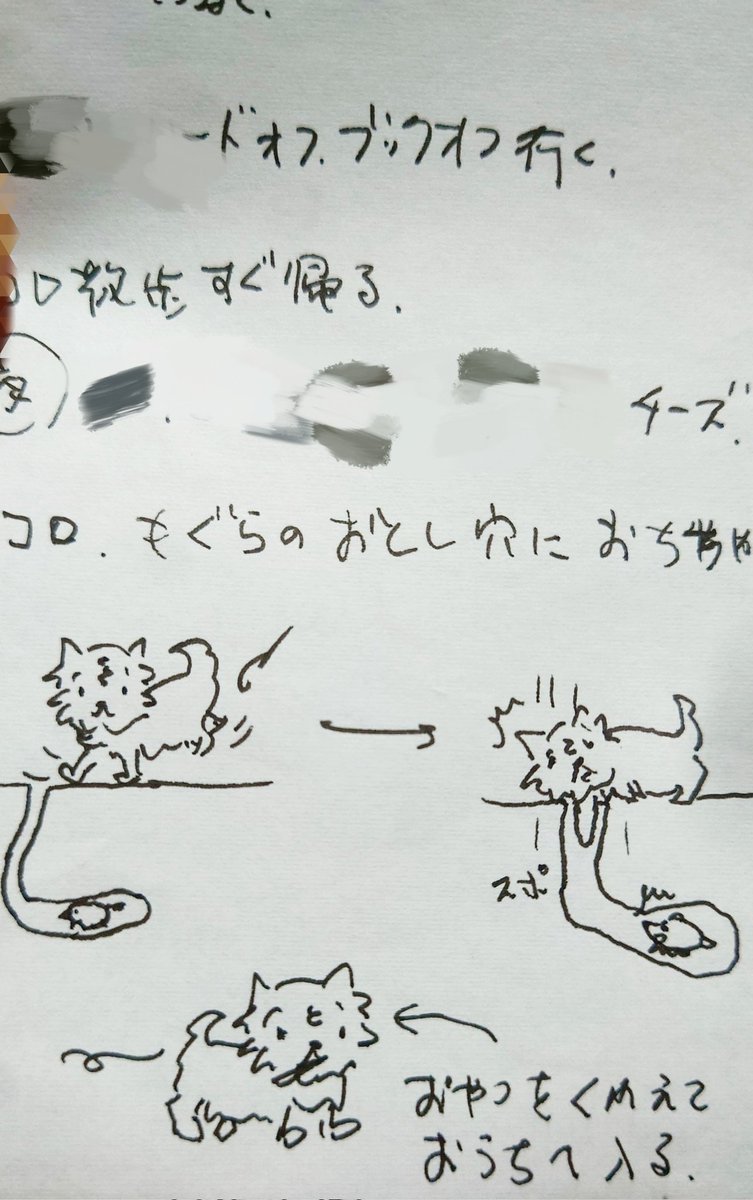 ードオフ. ブックオフ行く.
コロ散歩すぐ帰る.
夕 . チーズ.
コロ. もぐらのおとし穴におち
スポ
おやつをくわえて
おうちへ入る.